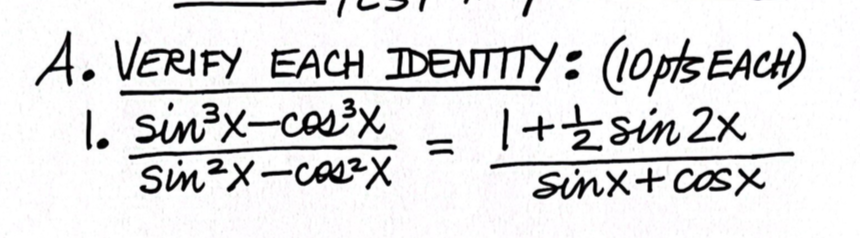 A. VERIFY EACH IDENTITY: (10pts EACH)
1. sin³x-cos³x / sin²x-cos²x = 1+½ sin 2x / sinx+cosx